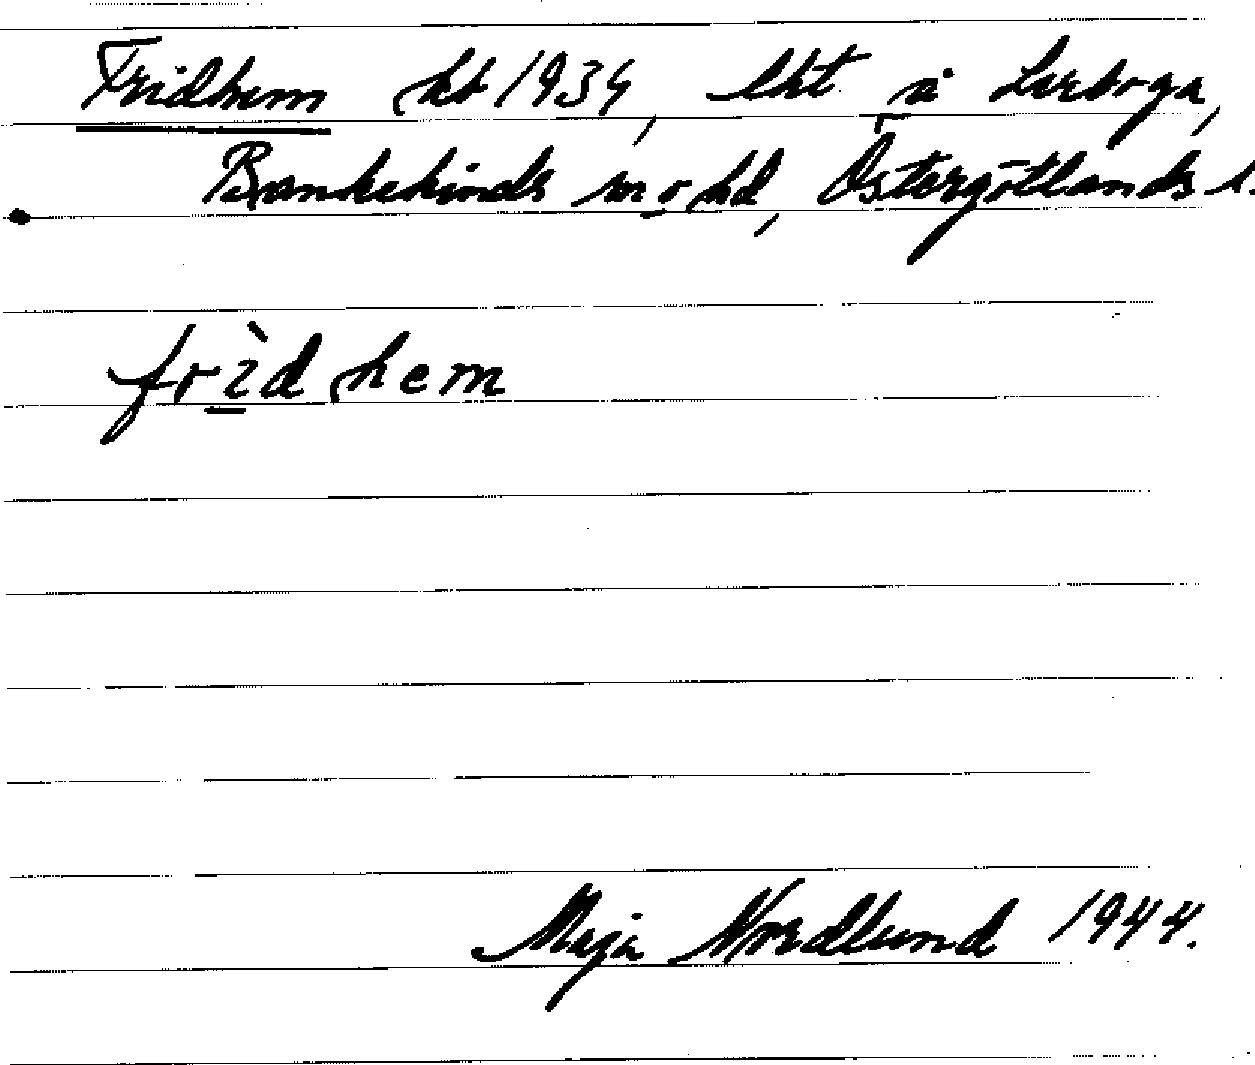 Fridhem kb 1934, lht å Lerboga,
Bankekinds sn o hd, Östergötlands l.
frìdhem
Maja Nordlund 1944.